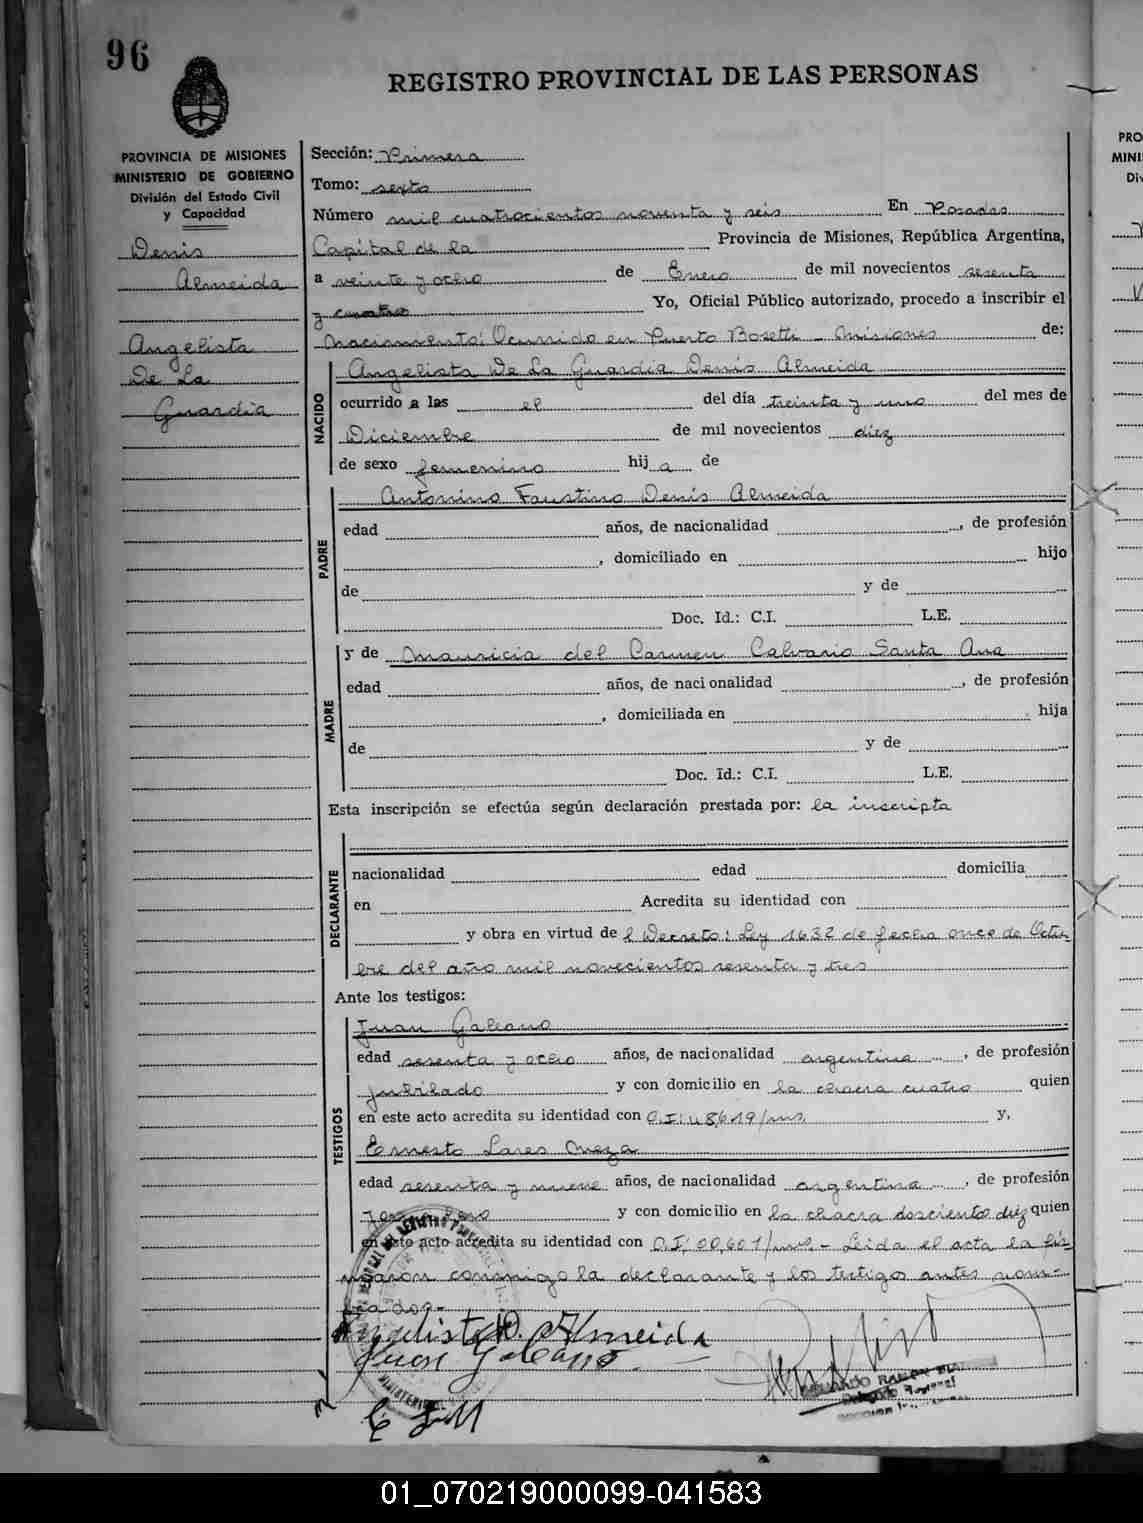 96
REGISTRO PROVINCIAL DE LAS PERSONAS
PROVINCIA DE MISIONES
MINISTERIO DE GOBIERNO
División del Estado Civil
y Capacidad
Denis
Almeida
Angelista
De La
Guardia
Sección: Primera
Tomo: sexto
Número mil cuatrocientos noventa y seis En Posadas
Capital de la Provincia de Misiones, República Argentina,
a veinte y ocho de Enero de mil novecientos sesenta
y cuatro Yo, Oficial Público autorizado, procedo a inscribir el
nacimiento: Ocurrido en Puerto Bosetti - Misiones de:
NACIDO
Angelista De La Guardia Denis Almeida
ocurrido a las el del día treinta y uno del mes de
Diciembre de mil novecientos diez
de sexo femenino hija de
PADRE
Antonino Faustino Denis Almeida
edad años, de nacionalidad , de profesión
, domiciliado en hijo
de y de
Doc. Id.: C.I. L.E.
MADRE
y de Mauricia del Carmen Calvario Santa Ana
edad años, de nacionalidad , de profesión
, domiciliada en hija
de y de
Doc. Id.: C.I. L.E.
Esta inscripción se efectúa según declaración prestada por: la inscripta
DECLARANTE
nacionalidad edad domicilia
en Acredita su identidad con
y obra en virtud de l Decreto: Ley 1632 de fecha once de Octu-
bre del año mil novecientos sesenta y tres
Ante los testigos:
TESTIGOS
Juan Galeano
edad sesenta y ocho años, de nacionalidad argentina , de profesión
jubilado y con domicilio en la chacra cuatro quien
en este acto acredita su identidad con C.I: y,
Ernesto Lares Meza
edad sesenta y nueve años, de nacionalidad argentina , de profesión
y con domicilio en la chacra doscientos diez quien
en este acto acredita su identidad con C.I: 00,601/ms. - Leida el acta la fir-
maron conmigo la declarante y los testigos antes nom-
brados.-
Angelista D. Almeida
Juan Galeano
E L M
EDUARDO RAMON
Delegado Regional
01_070219000099-041583